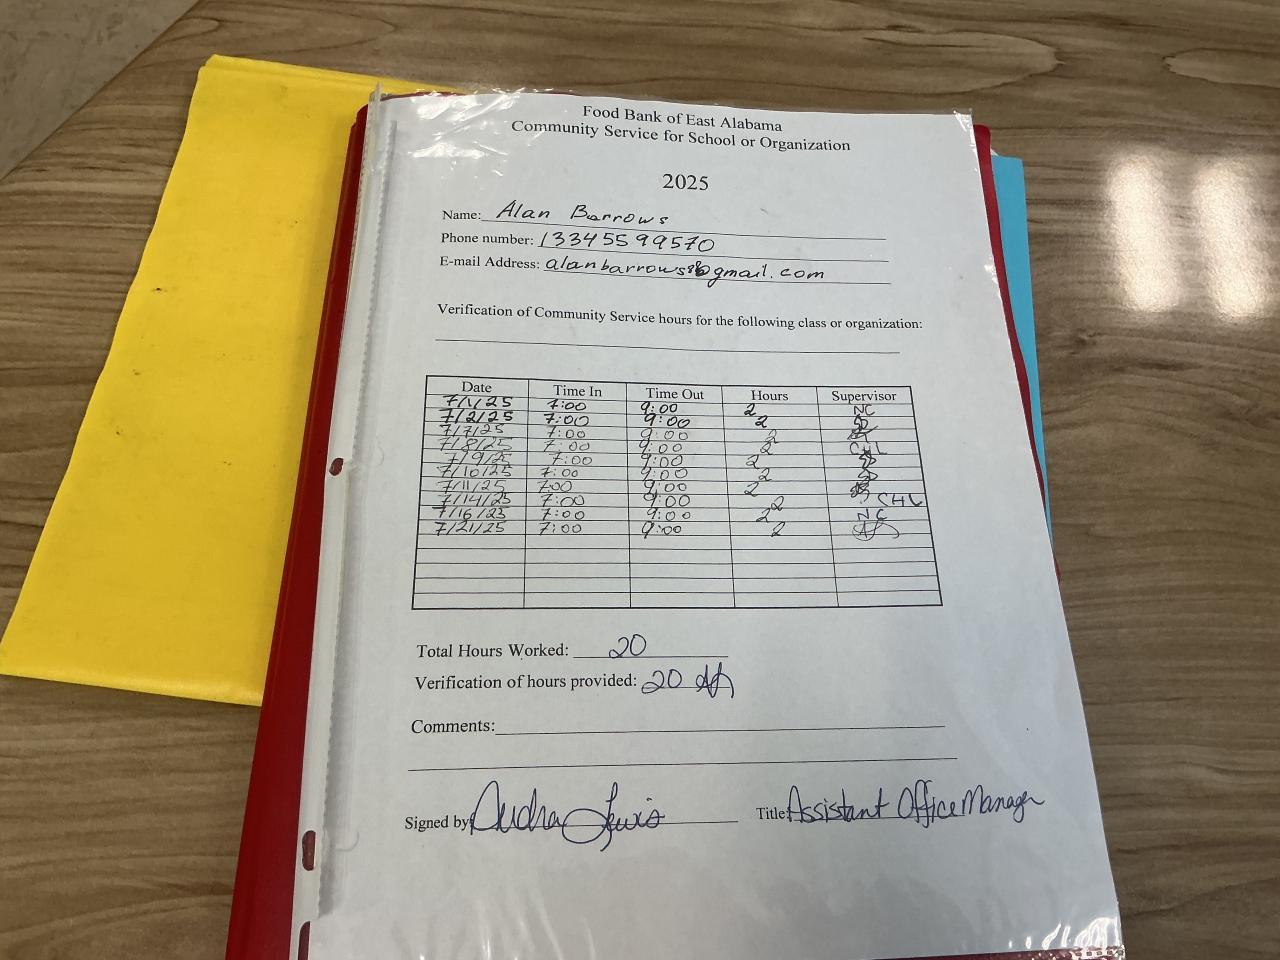 Food Bank of East Alabama
Community Service for School or Organization
2025
Name: Alan Barrows
Phone number: 13345599570
E-mail Address: @gmail.com
Verification of Community Service hours for the following class or organization:
Date Time In Time Out Hours Supervisor
7/1/25 7:00 9:00 2 NC
7/2/25 7:00 9:00 2
7/7/25 7:00 9:00 2
7/8/25 7:00 9:00 2 CHL
7/9/25 7:00 9:00 2
7/10/25 7:00 9:00 2
7/11/25 7:00 9:00 2
7/14/25 7:00 9:00 2 CHL
7/16/25 7:00 9:00 2 NC
7/21/25 7:00 9:00 2
Total Hours Worked: 20
Verification of hours provided: 20
Comments:
Signed by Audra Lewis Title Assistant Office Manager